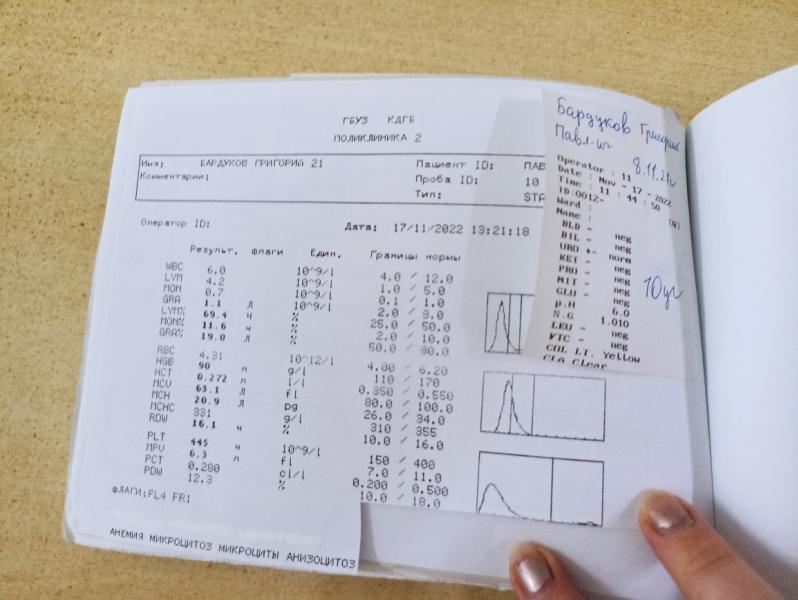 ГБУЗ КДГБ
ПОЛИКЛИНИКА 2
Имя: БАРДУКОВ ГРИГОРИЙ 21 Пациент ID: ПАВ
Комментарии: Проба ID: 10
Тип: STA
Оператор ID: Дата: 17/11/2022 13:21:18
Результ. Флаги Един. Границы нормы
WBC 6.0 10^9/l 4.0 / 12.0
LYM 4.2 10^9/l 1.0 / 5.0
MON 0.7 10^9/l 0.1 / 1.0
GRA 1.1 Л 10^9/l 2.0 / 8.0
LYM% 69.4 Ч % 25.0 / 50.0
MON% 11.6 Ч % 2.0 / 10.0
GRA% 19.0 Л % 50.0 / 80.0
RBC 4.31 10^12/l 4.00 / 6.20
HGB 90 Л g/l 110 / 170
HCT 0.272 Л l/l 0.350 / 0.550
MCV 63.1 Л fl 80.0 / 100.0
MCH 20.9 Л pg 26.0 / 34.0
MCHC 331 g/l 310 / 355
RDW 16.1 Ч % 10.0 / 16.0
PLT 445 Ч 10^9/l 150 / 400
MPV 6.3 Л fl 7.0 / 11.0
PCT 0.280 cl/l 0.200 / 0.500
PDW 12.3 % 10.0 / 18.0
ФЛАГИ:FL4 FR1
АНЕМИЯ МИКРОЦИТОЗ МИКРОЦИТЫ АНИЗОЦИТОЗ
Бардуков Григорий
8.11.21г
Operator : 11
Date : Nov - 17 - 2022
Time : 11 : 44 : 50
ID:0012-
Ward :
Name :
BLD - neg
BIL - neg
URO +- norm
KET - neg
PRO - neg
NIT - neg
GLU - neg
p.H 6.0
S.G 1.010
LEU - neg
VTC - neg
COL LT. Yellow
CLA Clear